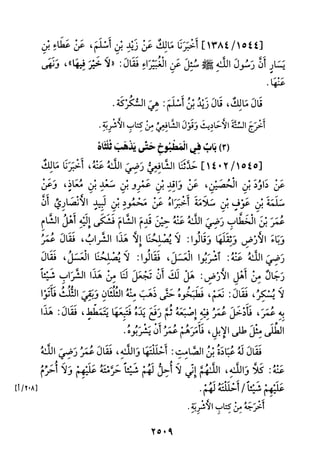 [١٣٨٤/١٥٤٤] أَخْبَرَنَا مَالِكٌ عَنْ زَيْدِ بْنِ أَسْلَمَ، عَنْ عَطَاءِ بْنِ
يَسَارٍ أَنَّ رَسُولَ اللَّهِ ﷺ سُئِلَ عَنِ الْغُبَيْرَاءِ فَقَالَ: «لَا خَيْرَ فِيهَا»، وَنَهَى
عَنْهَا.
قَالَ مَالِكٌ، قَالَ زَيْدُ بْنُ أَسْلَمَ: هِيَ السُّكْرُكَة.
أَخْرَجَ السِّتَّةَ الأَحَادِيثَ وَقَوْلَ الشَّافِعِيِّ مِنْ كِتَابِ الأَشْرِبَةِ.
(٣) بَابٌ فِي الْمَطْبُوخِ حَتَّى يَذْهَبَ ثُلُثَاهُ
[١٤٠٢/١٥٤٥] حَدَّثَنَا الشَّافِعِيُّ رَضِيَ اللَّهُ عَنْهُ، أَخْبَرَنَا مَالِكٌ
عَنْ دَاوُدَ بْنِ الْحُصَيْنِ، عَنْ وَاقِدِ بْنِ عَمْرِو بْنِ سَعْدِ بْنِ مُعَاذٍ، وَعَنْ
سَلَمَةَ بْنِ عَوْفِ بْنِ سَلَامَةَ أَخْبَرَاهُ عَنْ مَحْمُودِ بْنِ لَبِيدٍ الأَنْصَارِيِّ أَنَّ
عُمَرَ بْنَ الْخَطَّابِ رَضِيَ اللَّهُ عَنْهُ حِينَ قَدِمَ الشَّامَ فَشَكَى إِلَيْهِ أَهْلُ الشَّامِ
وَبَاءَ الأَرْضِ وَثِقَلَهَا وَقَالُوا: لَا يُصْلِحُنَا إِلَّا هَذَا الشَّرَابُ، فَقَالَ عُمَرُ
رَضِيَ اللَّهُ عَنْهُ: اشْرَبُوا الْعَسَلَ، فَقَالُوا: لَا يُصْلِحُنَا الْعَسَلُ، فَقَالَ
رِجَالٌ مِنْ أَهْلِ الأَرْضِ: هَلْ لَكَ أَنْ تَجْعَلَ لَنَا مِنْ هَذَا الشَّرَابِ شَيْئاً
لَا يُسْكِرُ، فَقَالَ: نَعَمْ، فَطَبَخُوهُ حَتَّى ذَهَبَ مِنْهُ الثُّلُثَانِ وَبَقِيَ الثُّلُثُ فَأَتَوْا
بِهِ عُمَرَ، فَأَدْخَلَ عُمَرُ فِيهِ إِصْبَعَهُ ثُمَّ رَفَعَ يَدَهُ فَتَبِعَهَا يَتَمَطَّطُ، فَقَالَ: هَذَا
الطِّلَى مِثْلُ طلى الإِبِلِ، فَأَمَرَهُمْ عُمَرُ أَنْ يَشْرَبُوهُ.
فَقَالَ لَهُ عُبَادَةُ بْنُ الصَّامِتِ: أَحْلَلْتَهَا وَاللَّهِ، فَقَالَ عُمَرُ رَضِيَ اللَّهُ
عَنْهُ: كَلَّا وَاللَّهِ، اللَّهُمَّ إِنِّي لَا أُحِلُّ لَهُمْ شَيْئاً حَرَّمْتَهُ عَلَيْهِمْ وَلَا أُحَرِّمُ
عَلَيْهِمْ شَيْئاً / أَحْلَلْتَهُ لَهُمْ. [٢٠٨/أ]
أَخْرَجَهُ مِنْ كِتَابِ الأَشْرِبَةِ.
٢٥٠٩